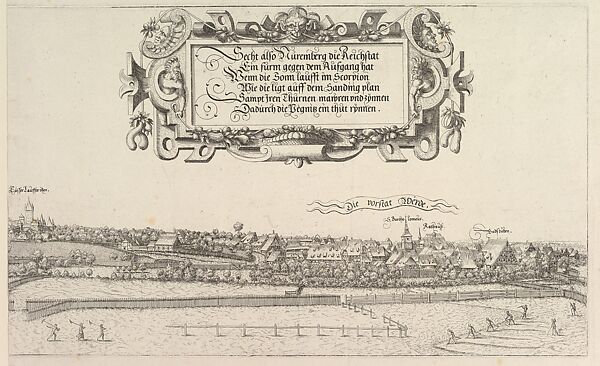 Secht also Nüremberg die Reichstat
Ein fürm gegen dem Aufgang hat
Wenn die Sonn laufft im Scorpion
Wie die ligt auff dem Sanding plan
Sampt Iren Thürnen maüren vnd zÿnnen
Dadurch die Pegnitz ein thüt rÿnnen.
Die vorstat Werde.
S. Bartholomeüs.
Rathaüs